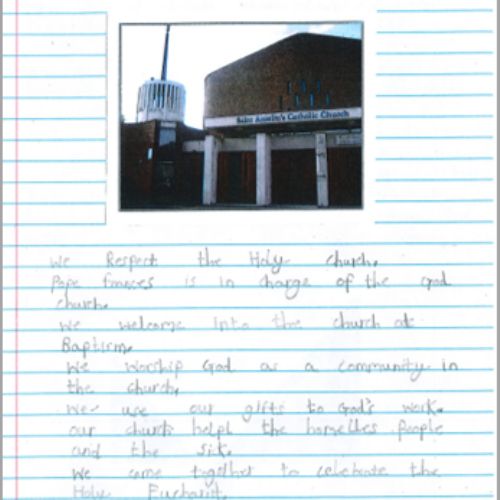 Saint Anselm's Catholic Church
We Respect the Holy church.
Pope frances is in charge of the god
church.
We welcome into the church at
Baptism.
We worship God as a community in
the church.
We use our gifts to God's work.
our church helpt the homelles people
and the sik.
We come together to celebrate the
Holy Eucharist.